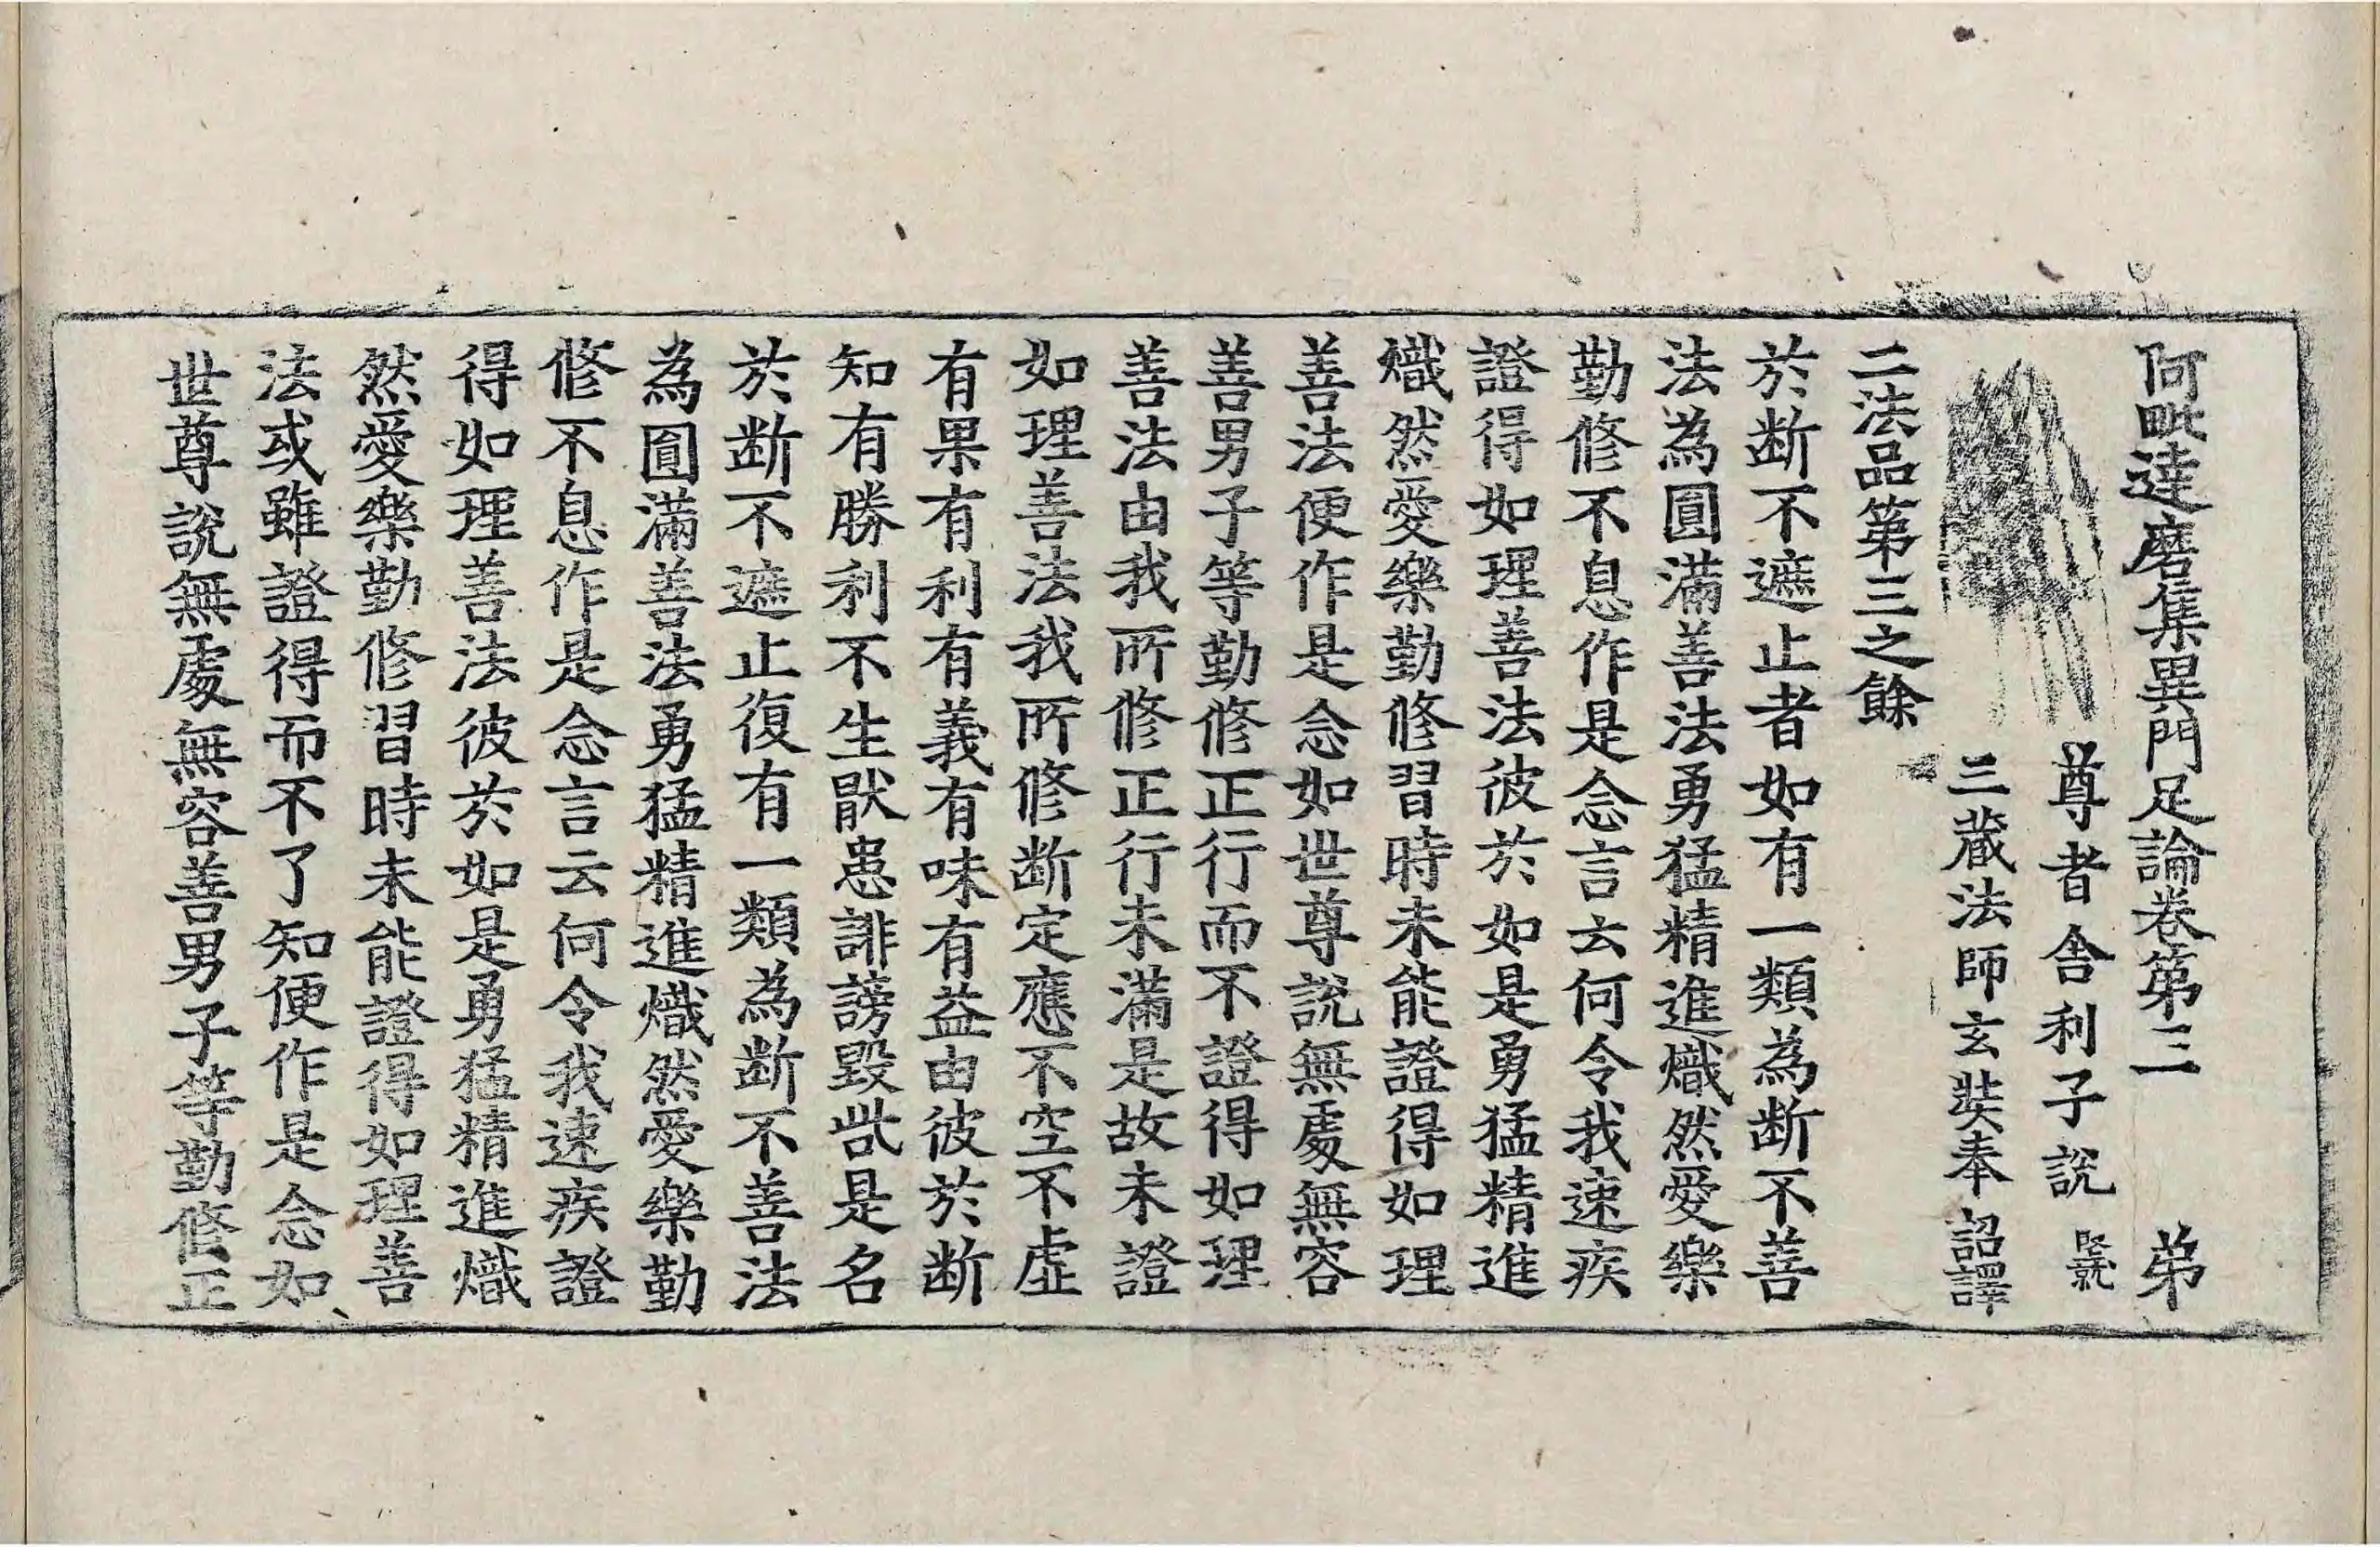 阿毗達磨集異門足論卷第三 弟
尊者舍利子說
三藏法師玄奘奉 詔譯
二法品第三之餘
於断不遮止者如有一類為断不善
法為圓滿善法勇猛精進熾然愛樂
勤修不息作是念言云何令我速疾
證得如理善法彼於如是勇猛精進
熾然愛樂勤修習時未能證得如理
善法便作是念如世尊說無處無容
善男子等勤修正行而不證得如理
善法由我所修正行未滿是故未證
如理善法我所修断定應不空不虛
有果有利有義有味有益由彼於断
知有勝利不生猒患誹謗毀呰是名
於断不遮止復有一類為断不善法
為圓滿善法勇猛精進熾然愛樂勤
修不息作是念言云何令我速疾證
得如理善法彼於如是勇猛精進熾
然愛樂勤修習時未能證得如理善
法或雖證得而不了知便作是念如
世尊說無處無容善男子等勤修正